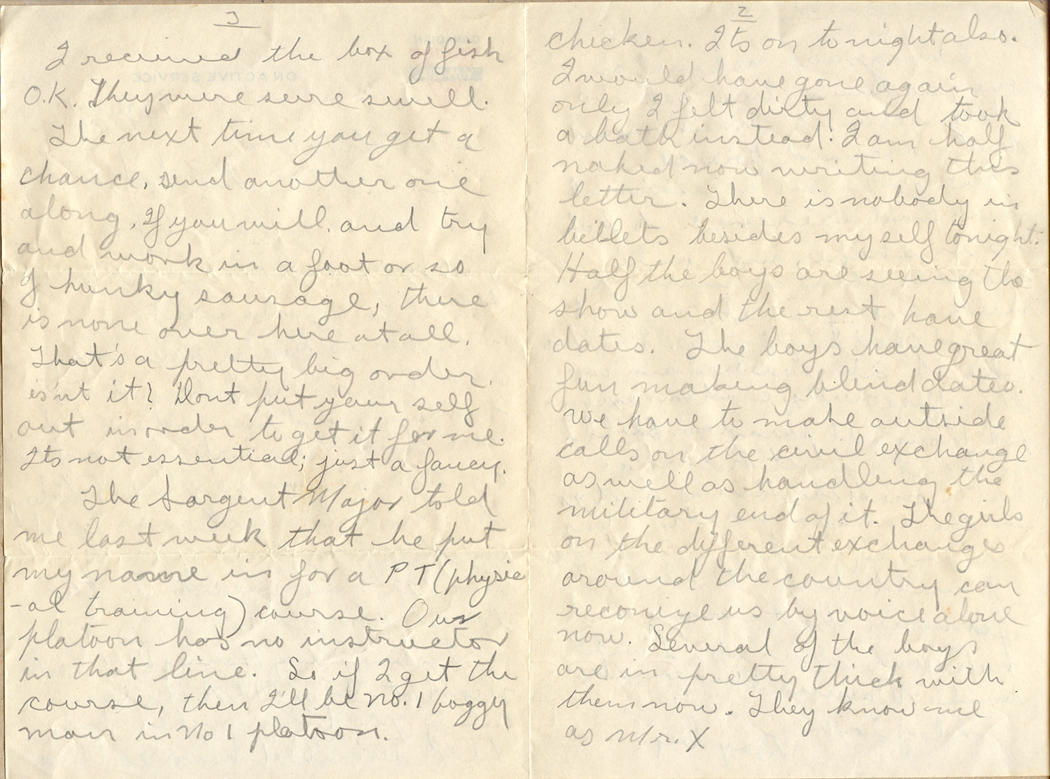 2
chicken. Its on tonight also.
I would have gone again
only I felt dirty and took
a bath instead! I am half
naked now writing this
letter. There is nobody in
billets besides myself tonight.
Half the boys are seeing the
show and the rest have
dates. The boys have great
fun making blind dates.
We have to make outside
calls on the civil exchange
as well as handling the
military end of it. The girls
on the different exchanges
around the country can
reconize us by voice alone
now. Several of the boys
are in pretty thick with
them now. They know me
as Mr. X
3
I received the box of fish
O.K. They were sure swell.
The next time you get a
chance, send another one
along, If you will, and try
and work in a foot or so
of hunky sausage, there
is none over here at all.
That's a pretty big order,
is'nt it? Dont put your self
out in order to get it for me.
Its not essential; just a fancy.
The Sargent Major told
me last week that he put
my name in for a PT (physic
-al training) course. Our
platoon has no instructor
in that line. So if I get the
course, then I'll be No. 1 buggy
man in No 1 platoon.